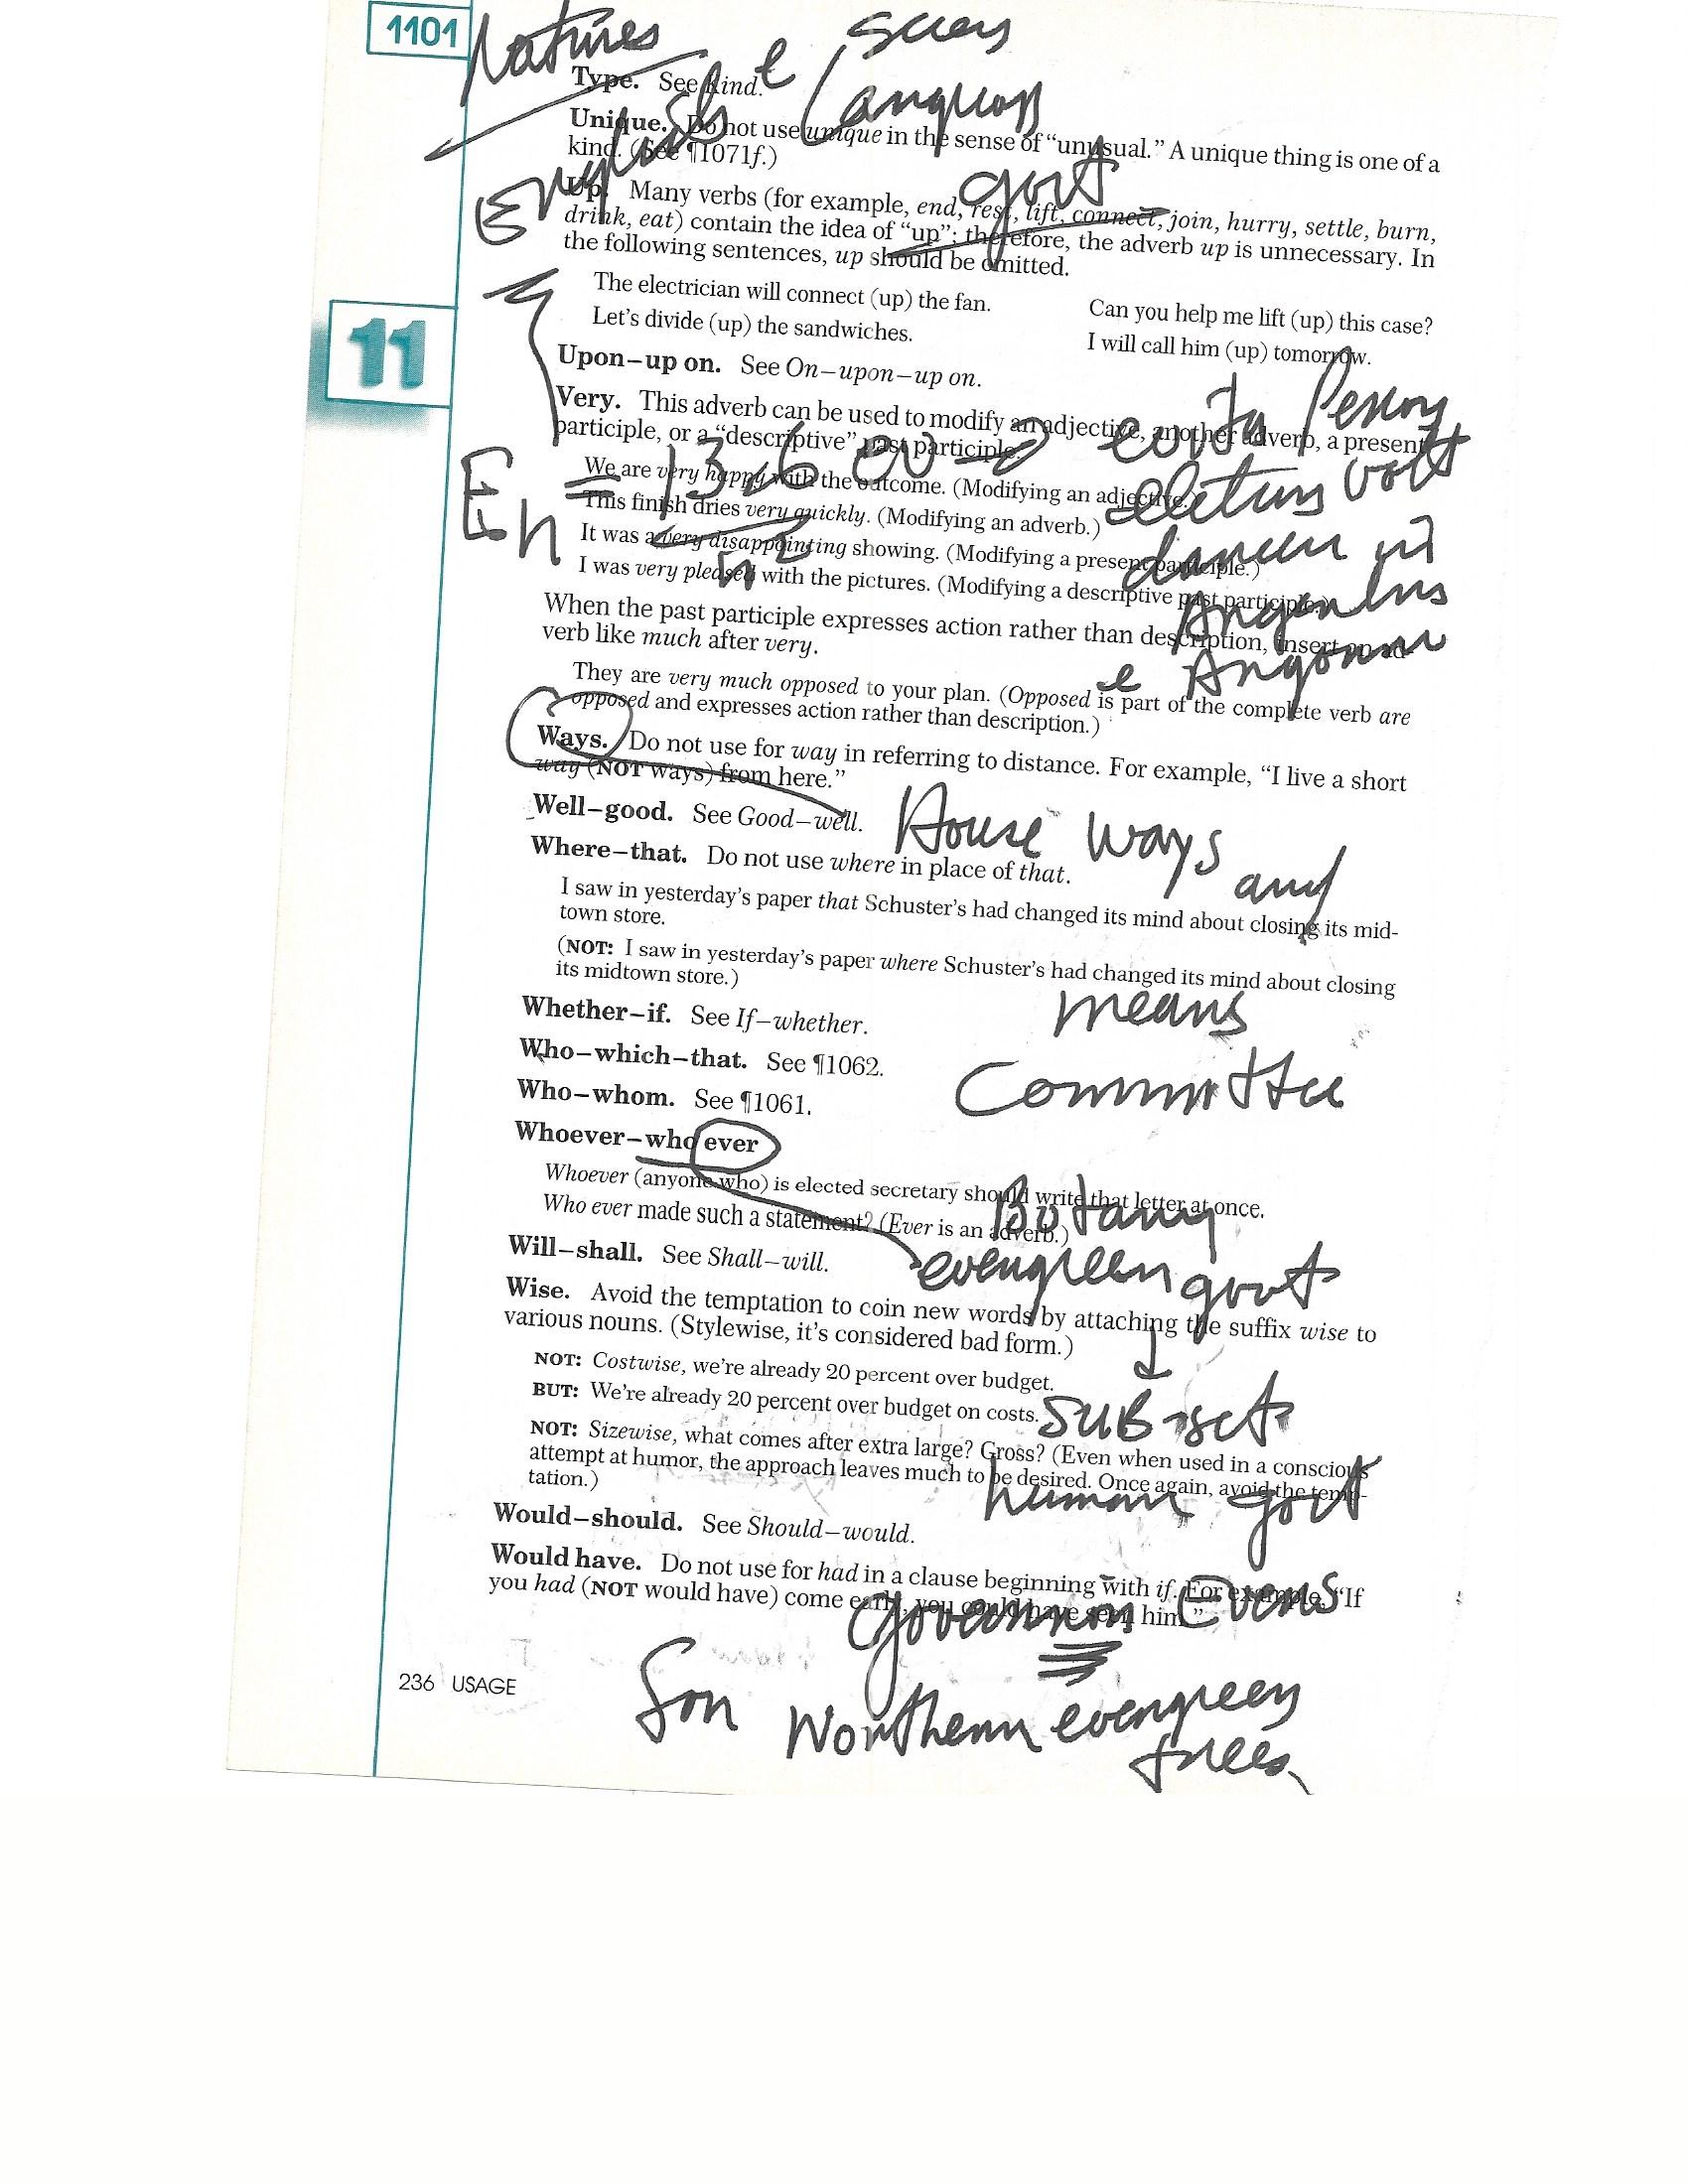 1101
Natures
Type. See kind.
Unique. Do not use unique in the sense of “unusual.” A unique thing is one of a
kind. (See ¶1071f.)
English
govt
Up. Many verbs (for example, end, rest, lift, connect, join, hurry, settle, burn,
drink, eat) contain the idea of “up”; therefore, the adverb up is unnecessary. In
the following sentences, up should be omitted.
The electrician will connect (up) the fan.
Can you help me lift (up) this case?
Let’s divide (up) the sandwiches.
I will call him (up) tomorrow.
11
Upon–up on. See On–upon–up on.
Very. This adverb can be used to modify an adjective, another adverb, a present
participle, or a “descriptive” past participle.
En = 13.6 ev
n2
volt
We are very happy with the outcome. (Modifying an adjective.)
This finish dries very quickly. (Modifying an adverb.)
It was a very disappointing showing. (Modifying a present participle.)
I was very pleased with the pictures. (Modifying a descriptive past participle.)
When the past participle expresses action rather than description, insert an ad-
verb like much after very.
They are very much opposed to your plan. (Opposed is part of the complete verb are
opposed and expresses action rather than description.)
Ways. Do not use for way in referring to distance. For example, “I live a short
way (NOT ways) from here.”
Well–good. See Good–well.
House ways
and
Where–that. Do not use where in place of that.
I saw in yesterday’s paper that Schuster’s had changed its mind about closing its mid-
town store.
(NOT: I saw in yesterday’s paper where Schuster’s had changed its mind about closing
its midtown store.)
means
Whether–if. See If–whether.
Who–which–that. See ¶1062.
Committee
Who–whom. See ¶1061.
Whoever–who ever
Whoever (anyone who) is elected secretary should write that letter at once.
Who ever made such a statement? (Ever is an adverb.)
Botany
evergreen govt
Will–shall. See Shall–will.
Wise. Avoid the temptation to coin new words by attaching the suffix wise to
various nouns. (Stylewise, it’s considered bad form.)
NOT: Costwise, we’re already 20 percent over budget.
BUT: We’re already 20 percent over budget on costs.
SUB-set
NOT: Sizewise, what comes after extra large? Gross? (Even when used in a conscious
attempt at humor, the approach leaves much to be desired. Once again, avoid the temp-
tation.)
human govt
Would–should. See Should–would.
Would have. Do not use for had in a clause beginning with if. For example, “If
you had (NOT would have) come early, you could have seen him.”
Governor Evens
236 USAGE
For Northern evergreen
trees